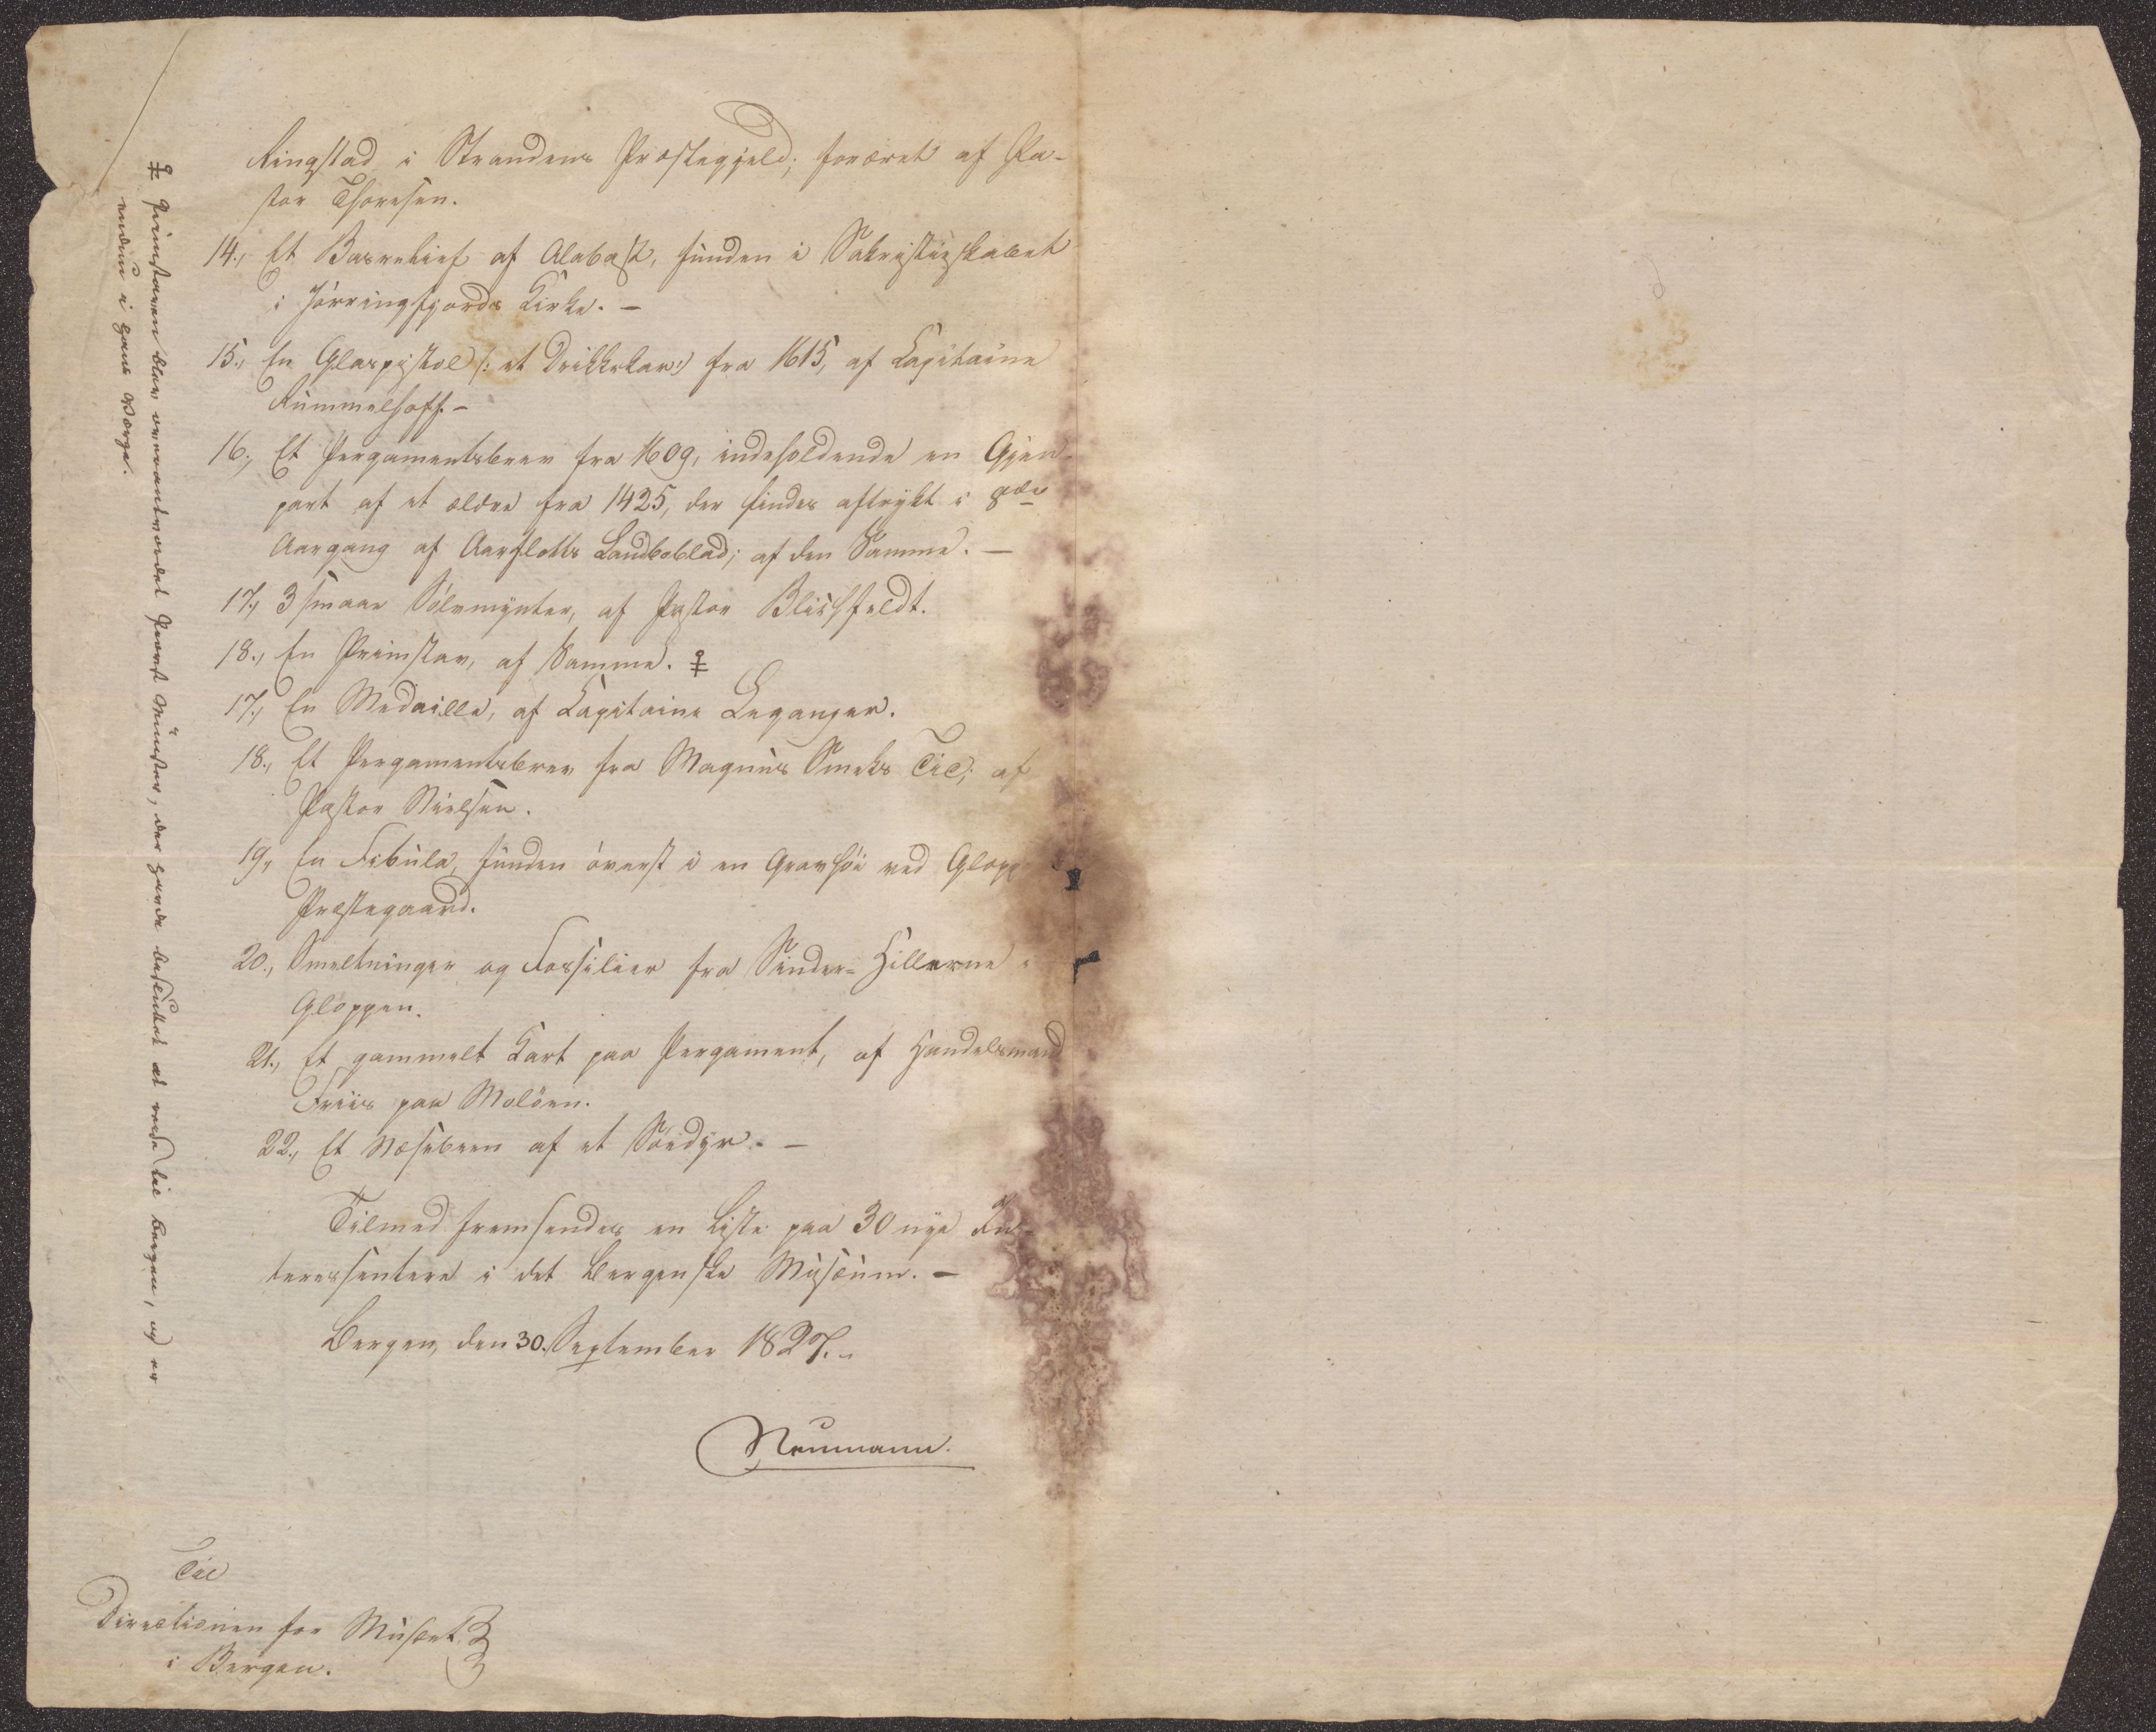 Ringstad i Strandens Præstegjeld; foræret af Pa-
stor Thoresen.
14., Et Basrelief af Alabast, funden i Sakristiskabet
i Jörringfjords Kirke. –
15., En Glaspistol (: et Drikkekar:) fra 1615, af Capitaine
Rummelhoff. –
16., Et Pergamentsbrev fra 1609, indeholdende en Gjen-
part af et ældre fra 1425, der findes aftrykt i 8de
Aargang af Aarflotts Landboblad; af den Samme. –
17., 3 smaae Sölvmynter, af Pastor Blichfeldt.
18., En Primstav, af Samme. ♀
17., En Medaille, af Capitaine Leganger.
18., Et Pergamentsbrev fra Magnus Smeks Tid; af
Pastor Nielsen.
19., En Fibula, funden överst i en Gravhöi ved Glopp
Præstegaard.
20., Smeltninger og Fossilier fra Sinder-Hillerne i
Gloppen.
21., Et gammelt Kart paa Pergament, af Handelsmand
Friis paa Molöen.
22., Et Næsebeen af et Söedyr. –
Tilmed fremsendes en Liste paa 30 nye In-
teressentere i det Bergenske Musæum. –
Bergen, den 30. September 1827. –
Neumann.
Til
Directionen for Musæet
i Bergen.
♀ Primstaven blev overantvordet Provst Münster, der havde besluttet at rede til Bergen, og er
endnu i hans Værge.